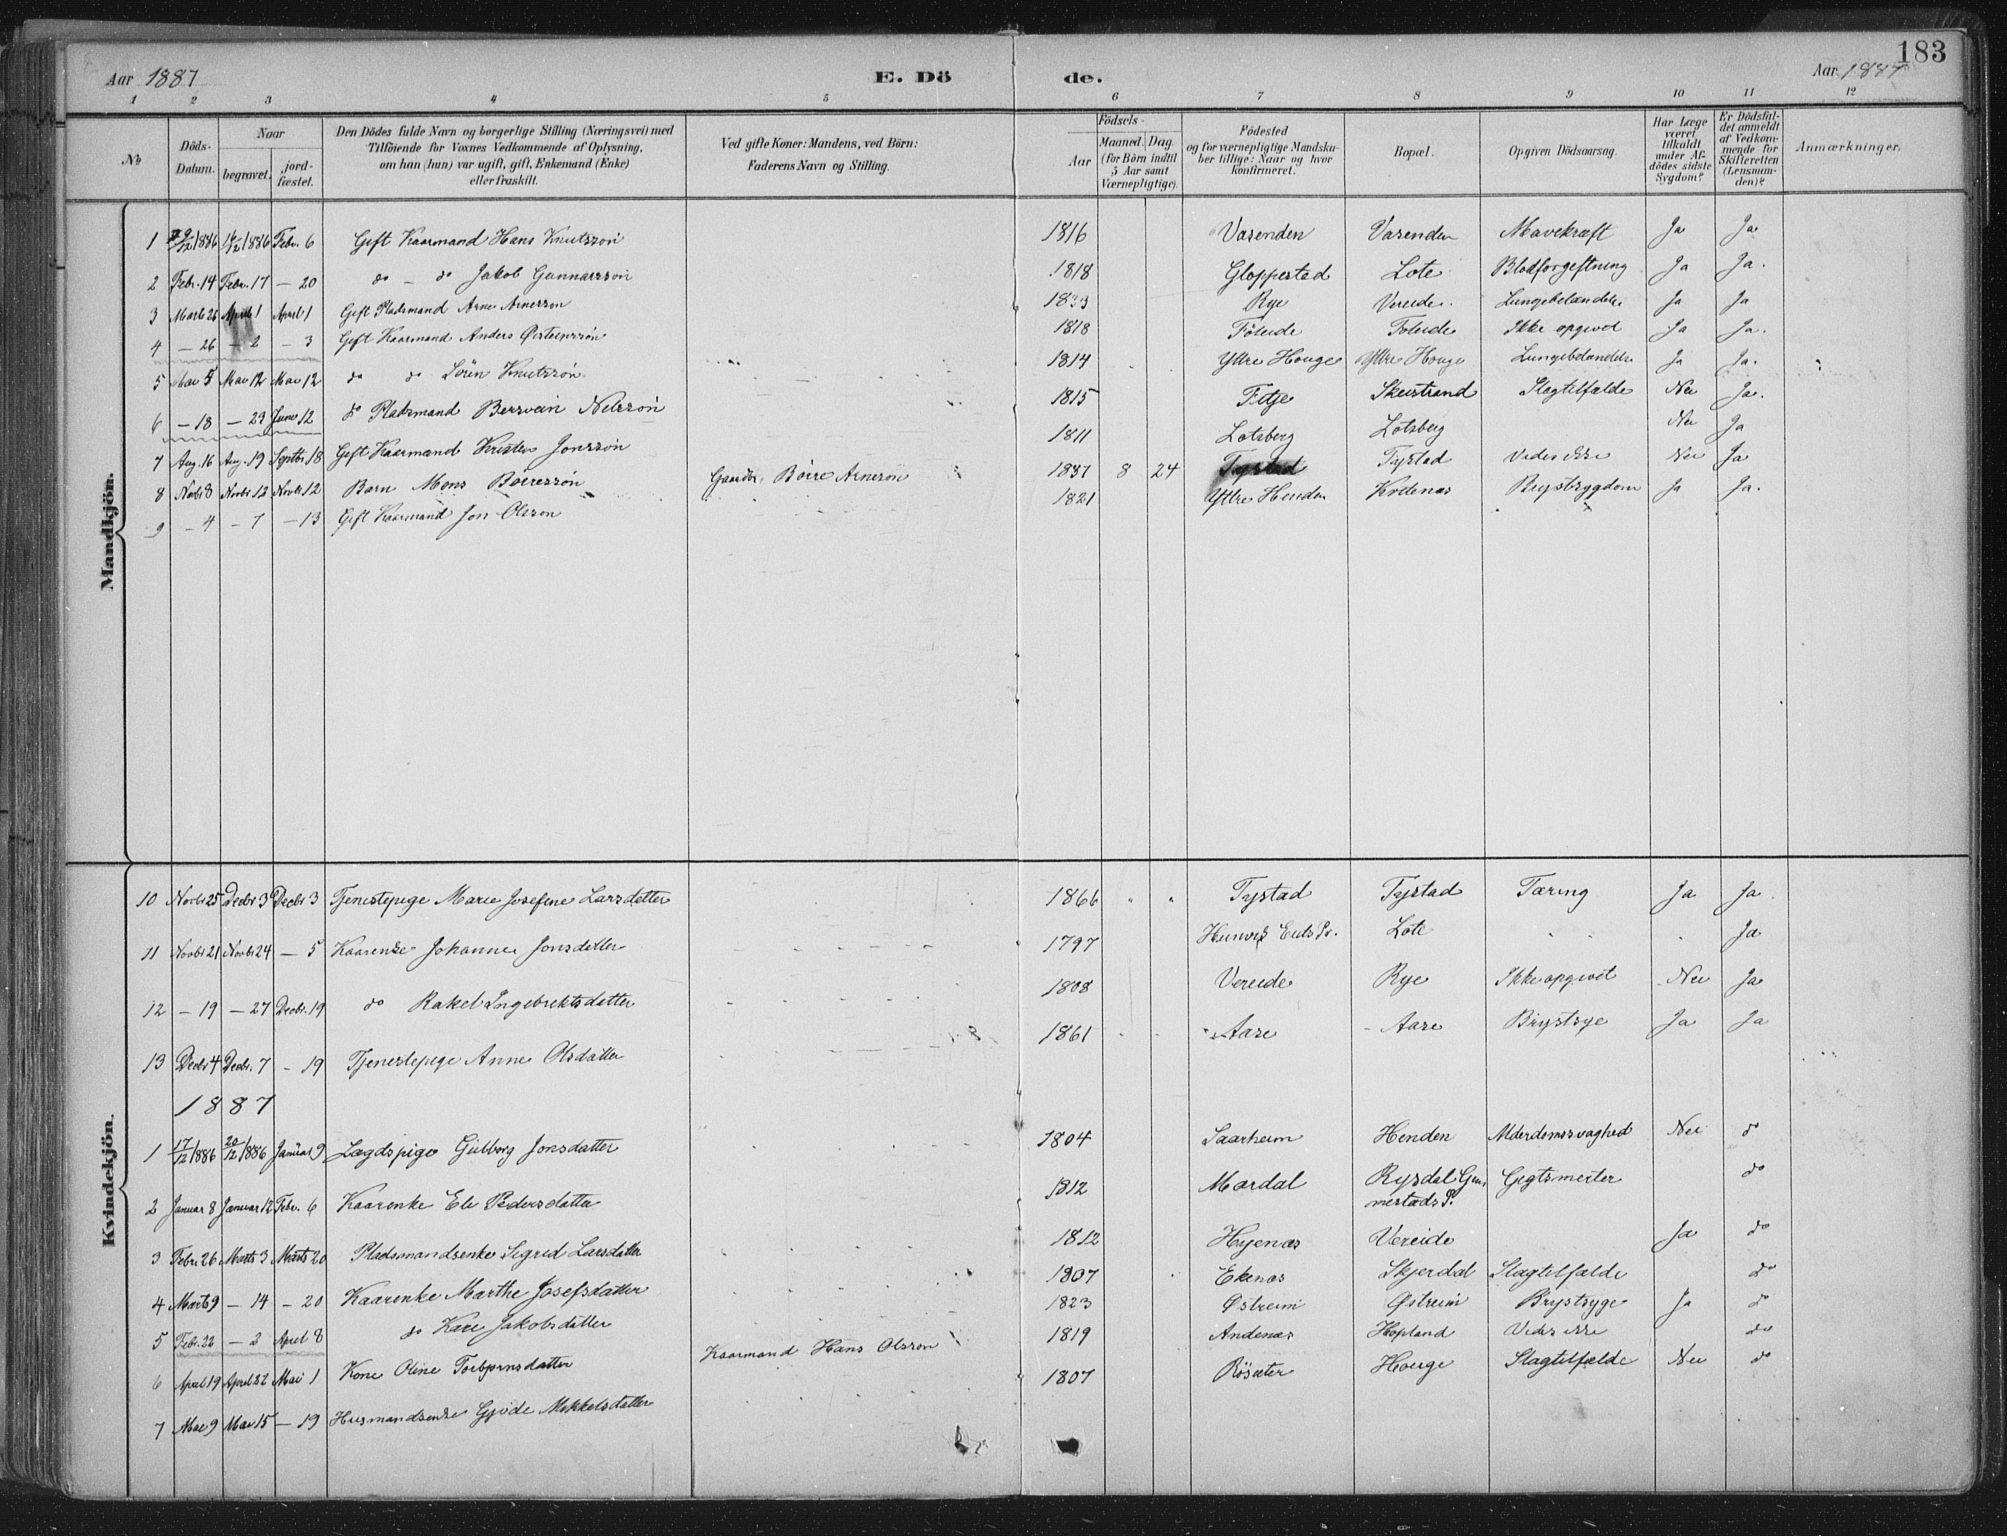 183
Aar 1887 E. Dö de. Aar 1887
1 2 3 4 5 6 7 8 9 10 11 12
No
Döds-Datum.
Naar
begravet.
jordfæstet.
Den Dödes fulde Navn og borgerlige Stilling (Næringsvei) med Tilföiende for Voxnes Vedkommende af Oplysning, om han (hun) var ugift, gift, Enkemand (Enke) eller fraskilt.
Ved gifte Koner: Mandens, ved Börn: Faderens Navn og Stilling.
Födsels-
Aar
Maaned. Dag.
(for Börn indtil 5 Aar samt Værnepligtige).
Födested og for værnepligtige Mandskaber tillige: Naar og hvor konfirmeret.
Bopæl.
Opgiven Dödsaarsag.
Har Læge været tilkaldt under Afdödes sidste Sygdom?
Er Dödsfaldet anmeldt af Vedkommende for Skifteretten (Lensmanden)?
Anmærkninger.
Mandkjön.
1 9/12 1886 16/12 1886 Febr. 6 Gift Kaarmand Hans Knutssön 1816 Vasenden Vasenden Mavekræft Ja Ja
2 Febr. 14 Febr. 17 — 20 do — do Jakob Gunnarssön 1818 Gloppestad Lote Blodforgiftning Ja Ja.
3 Marts 26 April 1 April 1 Gift Pladsmand Arne Arnessön 1833 Rye Vereide. Lungebetændelse Ja Ja
4 — 26 — 2 — 3 Gift Kaarmand Anders 1818 Föleide Föleide Ikke opgivet Ja Ja.
5 Mai 5 Mai 12 Mai 12 do do Sörin Knutssön 1814 Yttre Houge Yttre Houge Lungebetændelse Ja Ja.
6 — 18 — 23 Juni 12 do Pladsmand Bersvein Nilssön 1815 Fitje Skeistrand Slagtilfælde Nei Ja.
7 Aug. 16 Aug. 19 Septbr. 18 Gift Kaarmand Kristen Jonssön 1811 Lotsberg Lotsberg Nei Ja
8 Novbr 8 Novbr 12 Novbr 12 Barn Mons Böiressön Gaardbr. Böire Arnesön 1887 8 24 Tystad Tystad Vides ikke Nei Ja
9 — 4 — 7 — 13 Gift Kaarmand Jon Olsson 1821 Yttre Henden Brystsygdom Ja Ja.
Kvindekjön.
10 Novbr 25 Decbr 3 Decbr 3 Tjenestepige Marie Josefine Larsdatter 1866 " " Tystad Tystad Tæring Ja Ja.
11 Novbr 21 Novbr 24 — 5 Kaarenke Johanne Jonsdatter 1797 Eids Pr. Lote Ja
12 — 19 — 27 Decbr. 19 do Rakel Ingebrektsdatter 1808 Vereide Rye Ikke opgivet Nei Ja
13 Decbr 4 Decbr. 7 — 19 Tjenestepige Anne Olsdatter 1861 Aase Aase Brystsyge Ja Ja
1887
1 17/12 1886 20/12 1886 Januar 9 Lægdspige Gulborg Jonsdatter 1804 Saarheim Henden Alderdomssvaghed Nei do
2 Januar 8 Januar 12 Febr. 6 Kaarenke Eli Pedersdatter 1812 Mardal Rysdal Gimmestads P. Gigtsmerter do
3 Febr. 26 Marts 3 Marts 20 Pladsmandsenke Sigrid Larsdatter 1812 Hyenæs Vereide Ja do
4 Marts 9 — 14 — 20 Kaarenke Marthe Josefsdatter 1807 Ekenæs Skjerdal Slagtilfælde do
5 Febr. 22 — 2 April 8 do Kari Jakobsdatter 1823 Østreim Østreim Brystsyge Ja do
6 April 19 April 22 Mai 1 Kone Oline Torbjørnsdatter Kaarmand Hans Olsson 1819 Andenæs Hopland Vides ikke do
7 Mai 9 Mai 15 — 19 Husmandsenke Gjöde Mikkelsdatter 1807 Rösæter Houge Slagtilfælde Nei do